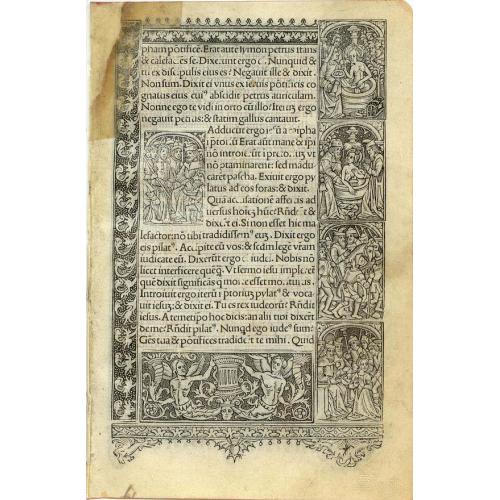 pham pōtificē. Erat autē symon petrus stans
& calefaciēs se. Dixerunt ergo ei. Nunquid &
tu ex discipulis eius es? Negauit ille & dixit.
Non sum. Dixit ei vnus ex seruis pōtificis co
gnatus eius cui⁹ abscidit petrus auriculam.
Nonne ego te vidi in orto cū illo? Iterū ergo
negauit petrus: & statim gallus cantauit.
Adducūt ergo iesū a caipha
i ptoriū Erāt autē mane & ipi
nō introierūt i pretoriū vt
nō ptaminarent: sed mādu
carēt pascha. Exiuit ergo py
latus ad eos foras: & dixit.
Quā acusationē affertis ad
uersus hoiez hūc? Rn̄dēt &
dixerūt ei. Si non esset hic ma
lefactor: nō tibi tradidissem⁹ euz. Dixit ergo
eis pilat⁹. Accipite eū vos: & scdm legē vr̄am
iudicate eū. Dixerūt ergo ei iudei. Nobis nō
licet interficere quēq̄. Vt sermo iesu impleret
quē dixit significās q̄ morte esset moriturus.
Introiuit ergo iterū i ptoriuz pylat⁹ & voca
uit iesuz: & dixit ei. Tu es rex iudeorū? Rn̄dit
iesus. A temetipo hoc dicis: an alii tibi dixerūt
de me? Rn̄dit pilat⁹. Nunqd ego iude⁹ sum?
Gēs tua & pōtifices tradiderūt te mihi. Quid